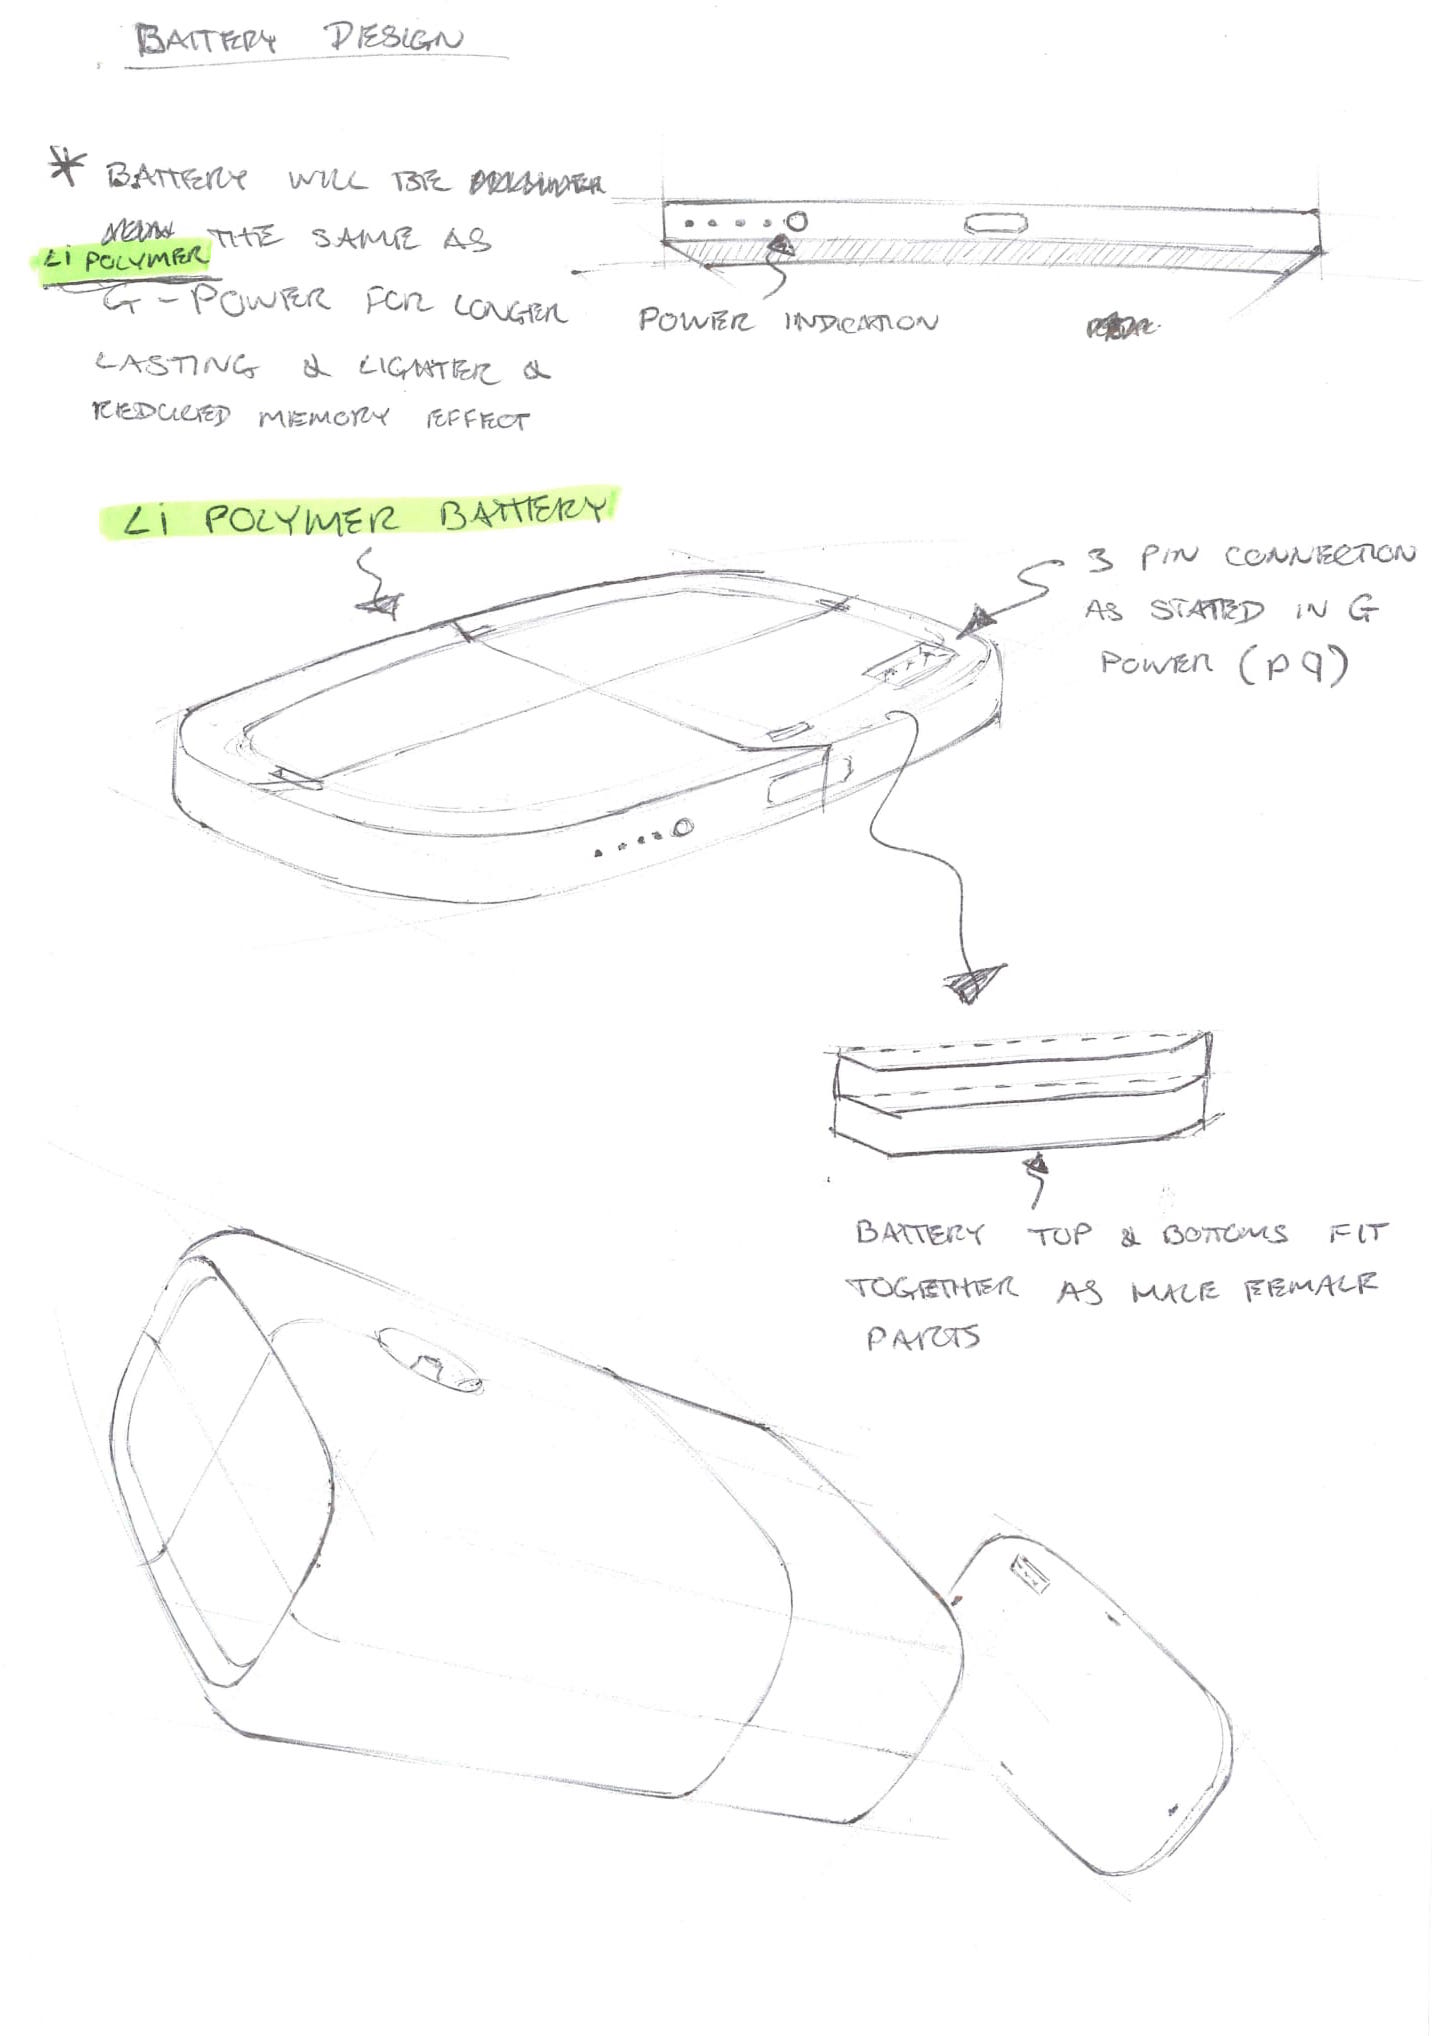 BATTERY DESIGN
* BATTERY WILL BE
THE SAME AS
Li POLYMER
G-POWER FOR LONGER
LASTING & LIGHTER &
REDUCED MEMORY EFFECT
POWER INDICATION
Li POLYMER BATTERY
3 PIN CONNECTION
AS STATED IN G
POWER (P9)
BATTERY TOP & BOTTOMS FIT
TOGETHER AS MALE FEMALE
PARTS